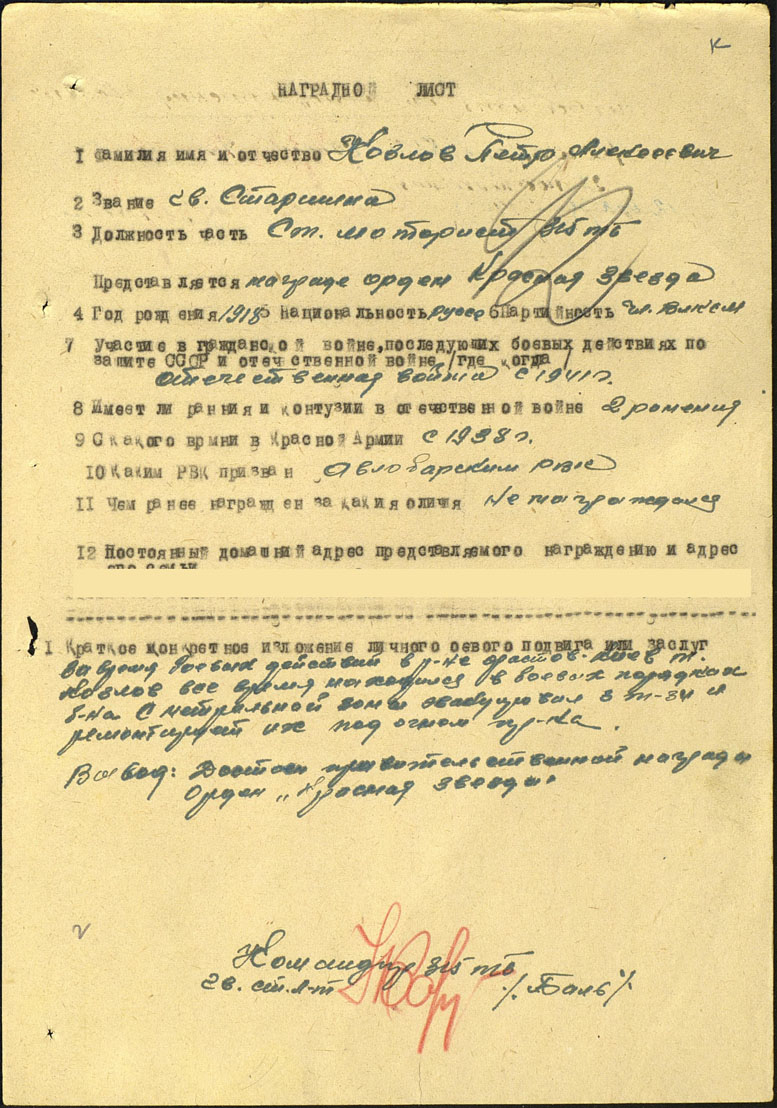 К
НАГРАДНОЙ ЛИСТ
1 Фамилия имя и отчество Козлов Петр Алексеевич
2 Звание гв. Старшина
3 Должность часть Ст. моторист 315 тб
Представляется награде орден Красная Звезда
4 Год рождения 1918 5 Национальность русс 6 Партийность чл. ВЛКСМ
7 Участие в гражданской войне, последующих боевых действиях по
защите СССР и отечественной войне /где когда/
Отечественная война с 1941 г.
8 Имеет ли рания и контузии в отечественной войне 2 ранения
9 С какого врмни в Красной Армии с 1938 г.
10 Каким РВК призван Авлобарским РВК
11 Чем ранее награжден за какия оличя не награждался
12 Постояный домашний адрес представляемого награждению и адрес
его семьи
I Краткое конкретное изложение личного боевого подвига или заслуг
Во время боевых действий в р-не Фастов-Киев т.
Козлов все время находился в боевых порядках
б-на. С нетральной зоны эвакуировал 3 Т-34 и
ремонтирует их под огнем пр-ка.
Вывод: Достоин правительственной награды
Орден „Красная Звезда"
Командир 315 тб
гв. ст. л-т /Баль/